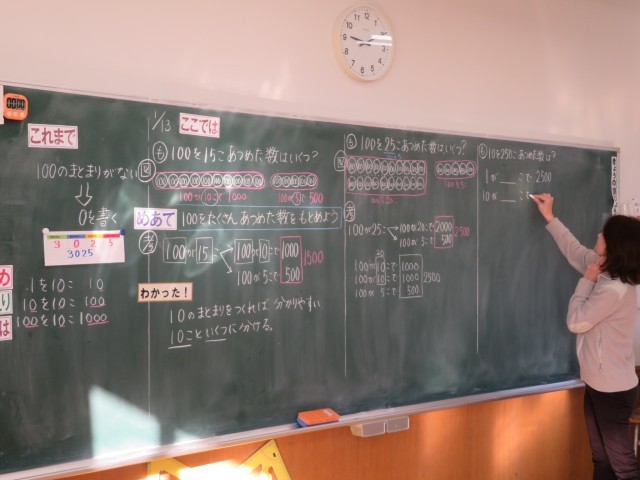 これまで
100のまとまりがない
0を書く
3 0 2 5
3025
1を10こ 10
10を10こ 100
100を10こ 1000
め
り
は
1/13 ここでは
も 100を15こあつめた数はいくつ?
図
100が10こで 1000
100が5こで 500
めあて 100をたくさんあつめた数をもとめよう
考
100が15こ
100が10こで 1000
100が5こで 500
1500
わかった!
10のまとまりをつくれば分かりやすい
10こといくつに分ける。
100を25こあつめた数はいくつ?
図
考
100が25こ
100が20こで 2000
100が5こで 500
2500
100が10こで 1000
100が10こで 1000
100が5こで 500
2500
10を250こあつめた数は?
1が こで 2500
10が こで